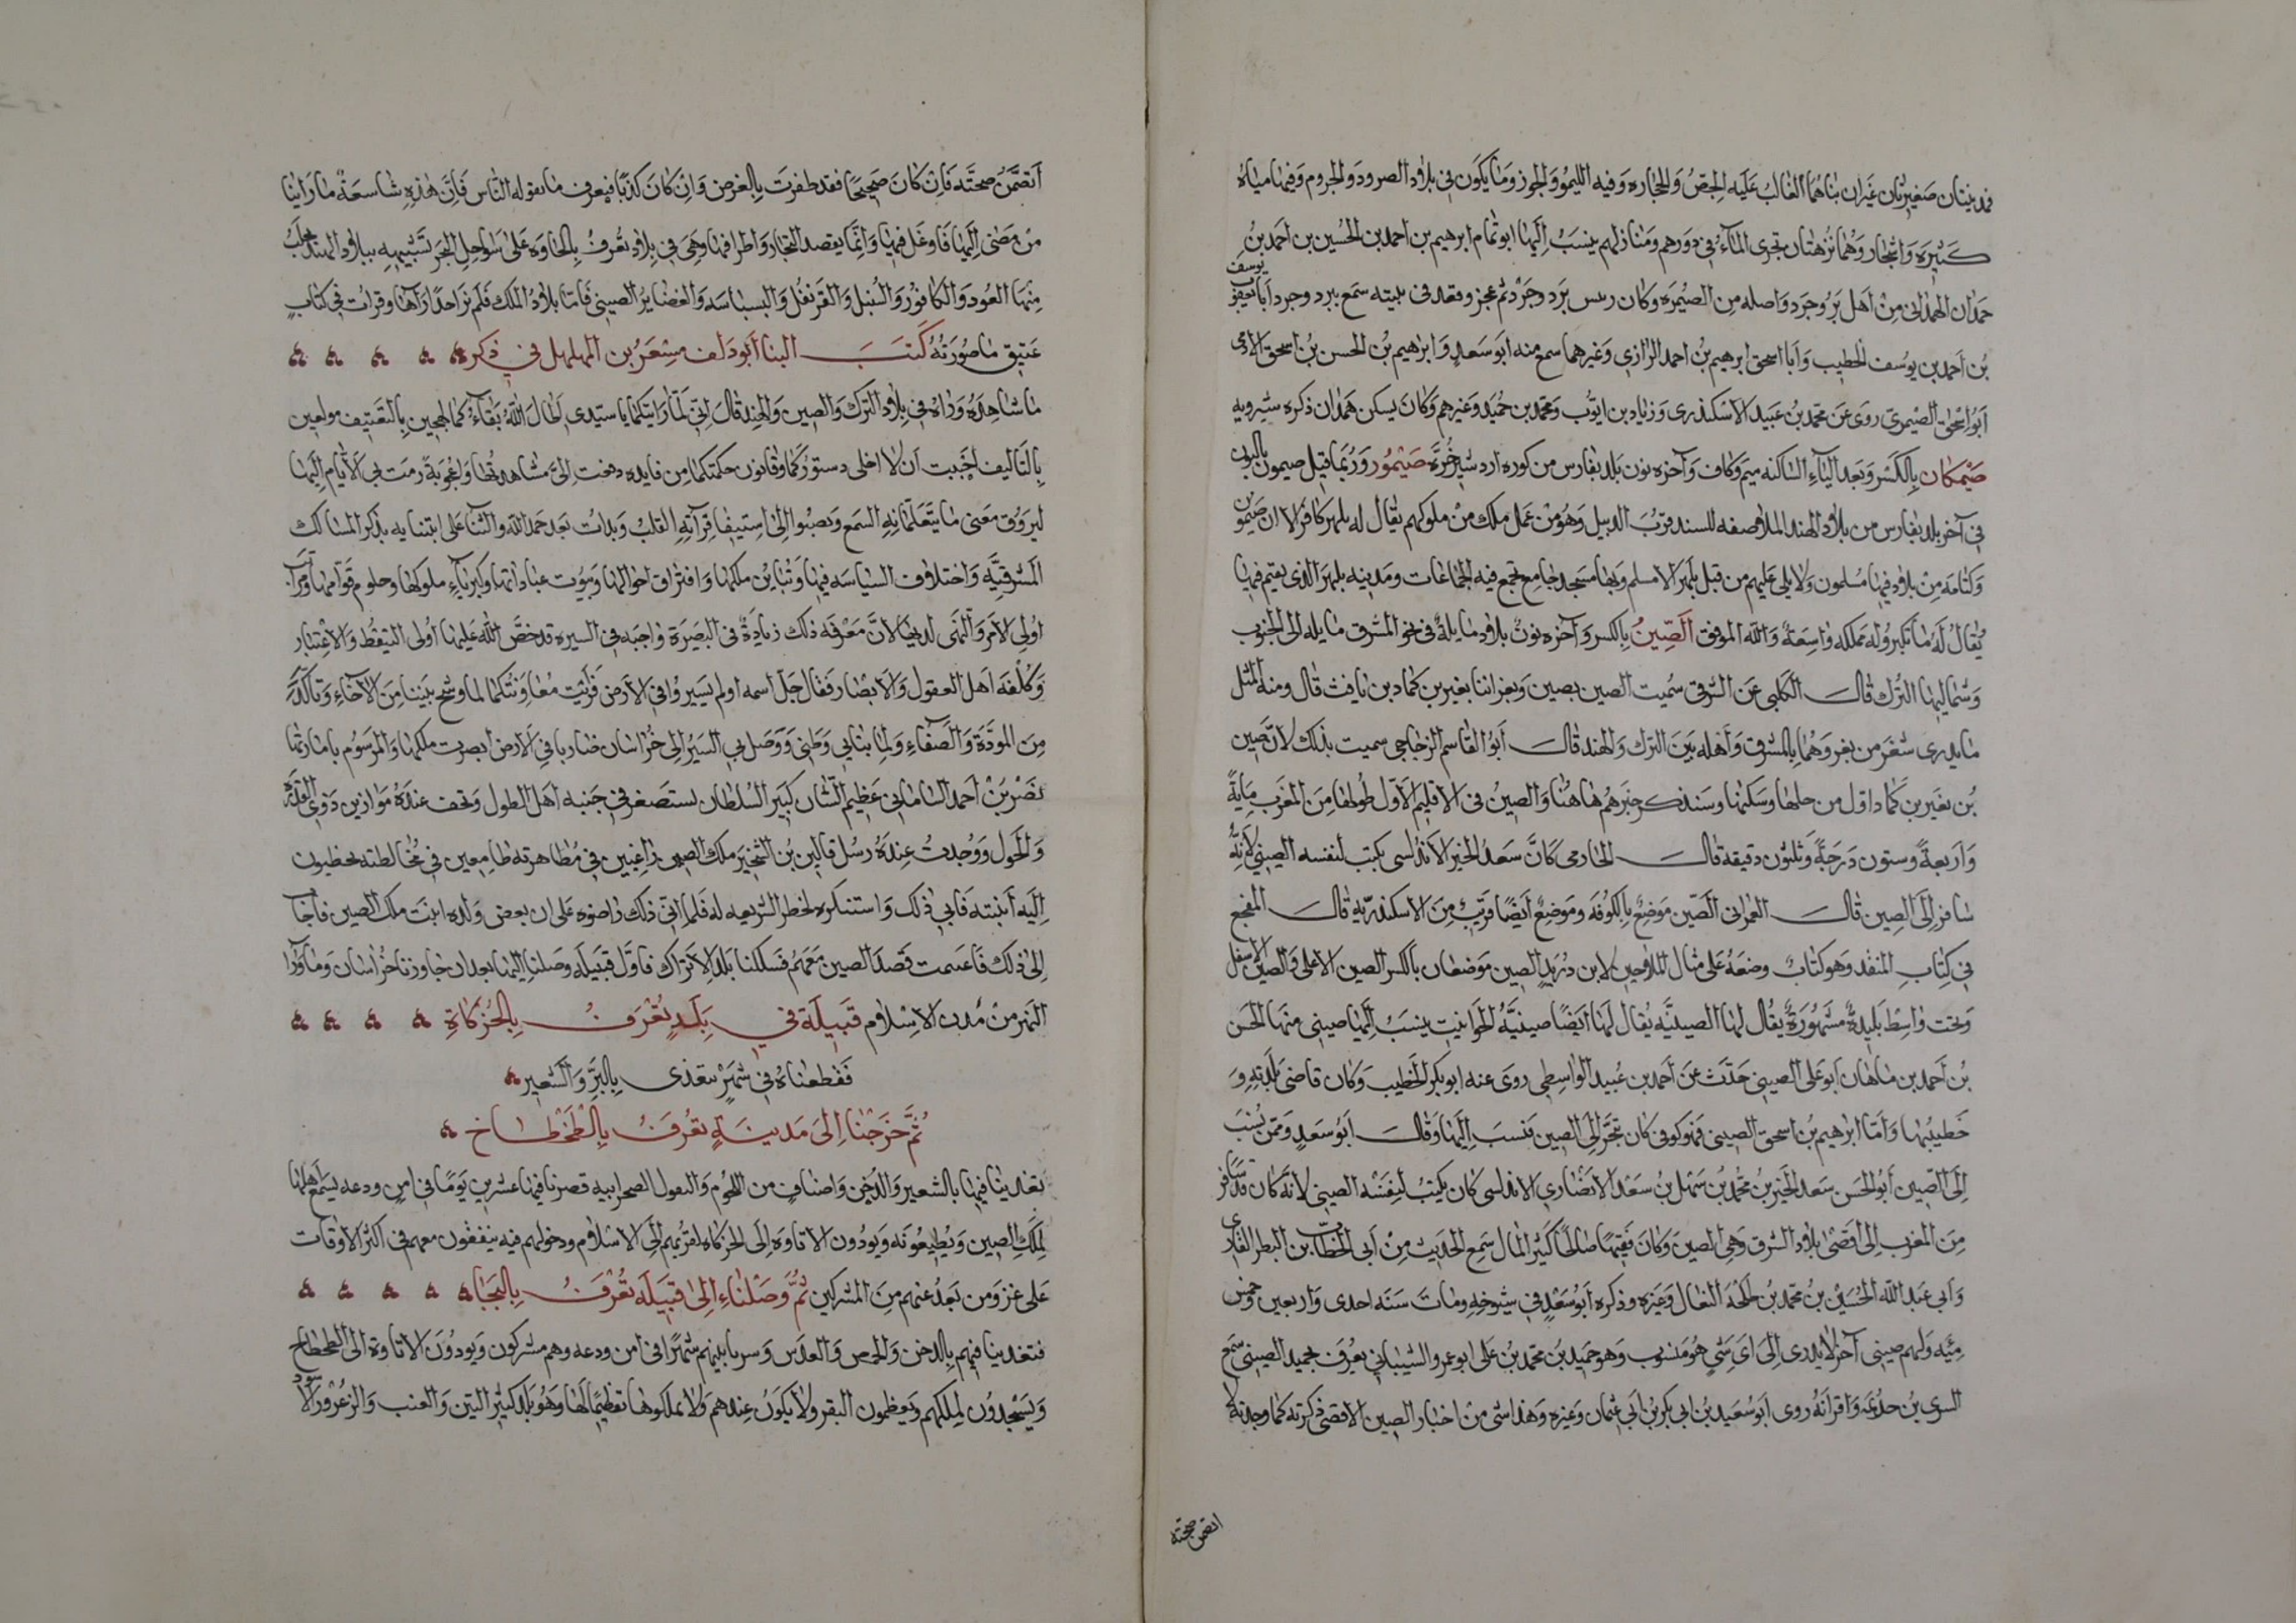 فمدينتان صغيرتان غيران بناهما الغالب عليه الجص والحجارة وفيه الليمو والجوز وما يكون في بلاد الصرود والجروم وفيها مياه
كثيرة واشجار وهما نزهتان تجري الماء في دورهم ومنازلهم ينسب إليها ابو تمام ابرهيم بن احمد بن الحسين بن احمد بن
حمدان الهمداني من اهل بروجرد واصله من الصيمرة وكان رئيس بروجرد ثم عجز وقعد في بيته سمع ببروجرد ابا يعقوب يوسف
بن احمد بن يوسف الخطيب وابا اسحق ابرهيم بن احمد الرازي وغيرهما سمع منه ابو سعد وابراهيم بن الحسن بن اسحق الادمي
ابو اسحق الصيمري روى عن محمد بن عبيد الاسكندري وزياد بن ايوب ومحمد بن حميد وغيرهم وكان يسكن همدان ذكره شيرويه
صيمكان بالكسر وبعد الياء الساكنه ميم وكاف وآخره نون بلد بفارس من كوره اردشير خره صيمور وربما قيل صيمون بالنون
في آخره بلد من بلاد الهند الملاصقه للسند قرب الديبل وهو من عمل ملك من ملوكهم يقال له بلهرا كافر الا ان صيمون
وكنامه من بلاد فيها مسلمون ولا يلي عليهم من قبل بلهرا الا مسلم وبها مسجد جامع تجمع فيه الجماعات ومدينه بلهرا الذي يقيم فيها
يقال له مانكير وله مملكه واسعة والله الموفق الصين بالكسر وآخره نون بلاد مايلة في نحو المشرق مايله الى الجنوب
وشماليها الترك قال الكلبي عن الشرقي سميت الصين بصين وبغر ابنا بغبر بن كماد بن يافث قال ومنه المثل
ما يدري شغر من بغر وهما بالمشرق واهله بين الترك والهند قال ابو القاسم الزجاجي سميت بذلك لان صين
بن بغبر بن كماد اول من حلها وسكنها وسنذكر خبرهم هاهنا والصين في الاقليم الاول طولها من المغرب ماية
واربعة وستون درجة وثلثون دقيقه قال الحازمي كان سعد الخير الاندلسي يكتب لنفسه الصيني لانه
سافر إلى الصين قال العمراني الصين موضع بالكوفه وموضع ايضا قريب من الاسكندرية قال المفجع
في كتاب المنقذ وهو كتاب وضعه على مثال الملاحن لابن دريد الصين موضعان بالكسر الصين الاعلى والصين الاسفل
وتحت واسط بليدة مشهورة يقال لها الصينيه يقال لها ايضا صينية الحوانيت ينسب إليها صيني منها الحسن
بن احمد بن ماهان ابو علي الصيني حدث عن احمد بن عبيد الواسطي روى عنه ابو بكر الخطيب وكان قاضي بلدته و
خطيبها واما ابرهيم بن اسحق الصيني فهو كوفي كان يتجر إلى الصين فنسب إليها وقال ابو سعد وممن نسب
إلى الصين ابو الحسن سعد الخير بن محمد بن سهل بن سعد الانصاري الاندلسي كان يكتب لنفسه الصيني لانه كان قد سافر
من المغرب إلى اقصى بلاد الشرق وهي الصين وكان فقيها صالحا كثير المال سمع الحديث من ابي الخطاب بن البطر القاري
وابي عبد الله الحسين بن محمد بن طلحة النعال وغيره وذكره ابو سعد في شيوخه ومات سنة احدى واربعين وخمس
ميه ولهم صيني آخر لا يدرى إلى اي شي هو منسوب وهو حميد بن محمد بن علي ابو عمرو الشيباني يعرف بحميد الصيني سمع
السري بن خزيمة واقرانه روى ابو سعيد بن ابي بكر بن ابي عثمان وغيره وهذا شي من اخبار الصين الاقصى ذكرته كما وجدته لا
اتضمن صحته
اتضمن صحته فان كان صحيحا فقد ظفرت بالغرض وان كان كذبا فتعرف ما يقوله الناس فان هذه شاسعة ما راينا
من مضى إليها فاوغل فيها وانما يقصد التجار اطرافها وهي في بلاد تعرف بالجاوه على سواحل البحر شبيهه ببلاد الهند يجلب
منها العود والكافور والسنبل والقرنفل والبسباسه والغضاير الصيني فاما بلاد الملك فلم نر احدا رآها وقرات في كتاب
عتيق ما صورته كتب الينا ابو دلف مسعر بن المهلهل في ذكر
ما شاهده ورآه في بلاد الترك والصين والهند قال اني لما رايتكما يا سيدي اطال الله بقاءكما لهجين بالتصنيف مولعين
بالتاليف احببت ان لا اخلي دستوركما وقانون حكمتكما من فايده وقعت الي مشاهدتها واعجوبة رمت بي الايام إليها
ليروق معنى ما تتعلمانه السمع ويصبوا إلى استيفا قرآته القلب وبدات بعد حمد الله والثنا على انبيايه بذكر المسالك
المشرقيه واختلاف السياسه فيها وتباين ملكها وافتراق احوالها وبيوت عباداتها وكبرياء ملوكها وحلوم قوامها ومراتب
اولي الامر والنهي لديها لان معرفه ذلك زيادة في البصيرة واجبه في السيره قد حض الله عليها اولي التيقظ والاعتبار
وكلفه اهل العقول والابصار فقال جل اسمه اولم يسيروا في الارض فرايت معاونتكما لما وشج بيننا من الاخاء وتاكد
من المودة والصفاء ولما نبا بي وطني ووصل بي السير إلى خراسان ضاربا في الارض ابصرت ملكها والمرسوم بامارتها
نصر بن احمد الساماني عظيم الشان كبير السلطان يستصغر في جنبه اهل الطول وتخف عنده موازين ذوي القدرة
والحول ووجدت عنده رسل قالين بن الشخير ملك الصين راغبين في مصاهرته طامعين في مخالطته يخطبون
إليه ابنته فابى ذلك واستنكره لحظر الشريعه له فلما ابى ذلك راضوه على ان بعض ولده ابنت ملك الصين فاجاب
إلى ذلك فاغتنمت قصد الصين معهم فسلكنا بلد الاتراك فاول قبيله وصلنا إليها بعد ان جاوزنا خراسان وما ورا
النهر من مدن الاسلام قبيلة في بلد يعرف بالخركاة
فقطعناه في شهر نتغذى بالبر والشعير
ثم خرجنا إلى مدينة تعرف بالطخطاخ
تغدينا فيها بالشعير والدخن واصناف من اللحوم والبقول الصحراويه فصرنا فيها عشرين يوما في امن ودعه يسمع اهلها
لملك الصين ويطيعونه ويودون الاتاوه إلى الخركاه لقربهم إلى الاسلام ودخولهم فيه يتفقون معهم في اكثر الاوقات
على غزو من بعد عنهم من المشركين ثم وصلنا إلى قبيلة تعرف بالبجا
فتغدينا فيهم بالدخن والحمص والعدس وسرنا بينهم شهرا في امن ودعه وهم مشركون ويودون الاتاوة إلى الطخطاخ
ويسجدون لملكهم ويعظمون البقر ولا يكون عندهم ولا يملكونها تعظيما لها وهو بلد كثير التين والعنب والزعرور الاسود